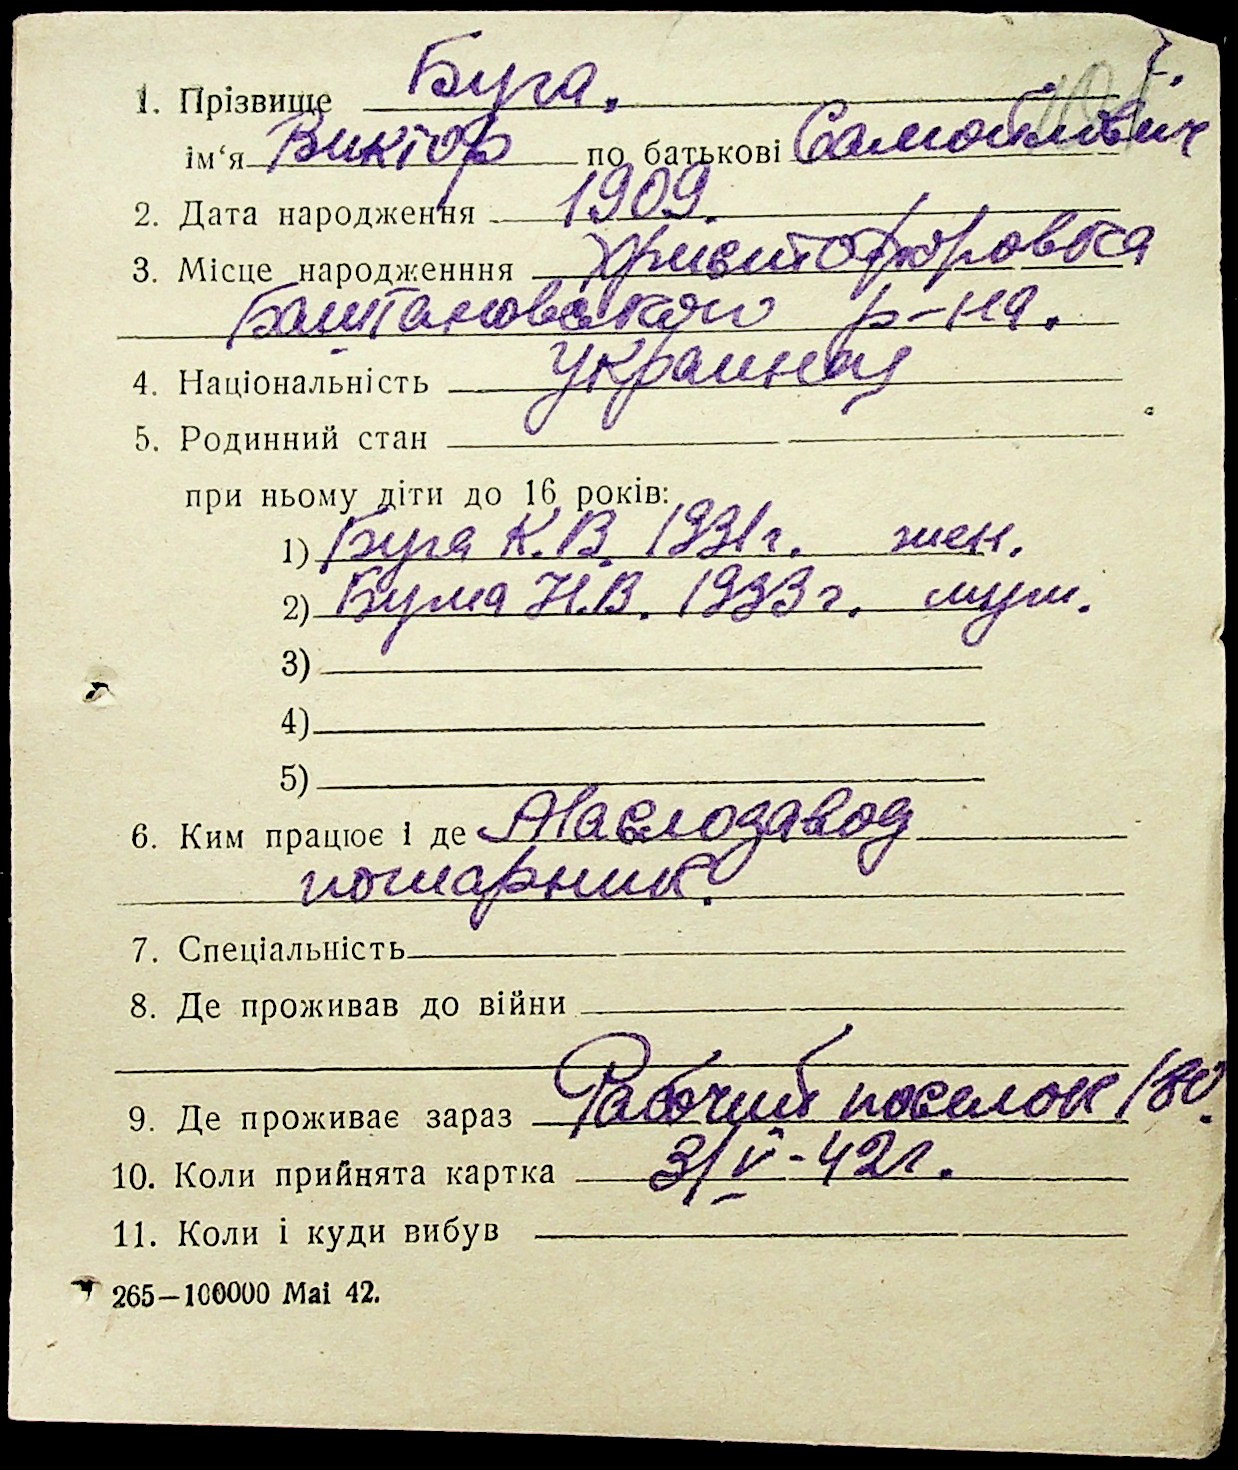 1. Прізвище Буга.
ім‘я Виктор по батькові Самойлович
2. Дата народження 1909.
3. Місце народженння Христофоровка
Баштановского р-на.
4. Національність украинец
5. Родинний стан
при ньому діти до 16 років:
1) Буга К.В. 1931г. жен.
2) Буга Н.В. 1933г. муж.
3)
4)
5)
6. Ким працює і де Маслозавод
пожарник.
7. Спеціальність
8. Де проживав до війни
9. Де проживає зараз Рабочий поселок 180.
10. Коли прийнята картка 3/V-42г.
11. Коли і куди вибув
265—100000 Mai 42.